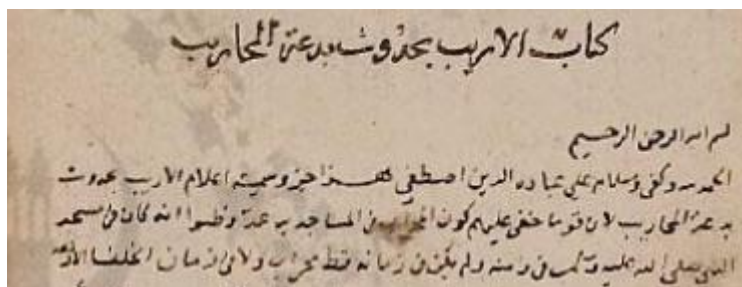 كتاب الاريب بحدوث بدعة المحاريب
بسم الله الرحمن الرحيم
الحمد لله وكفى وسلام على عباده الذين اصطفى هذا جزو سميته اعلام الاريب بحدوث
بدعة المحاريب لان قوما خفى عليهم كون المحراب فى المساجد بدعة وظنوا انه كان فى مسجد
النبى صلى الله عليه وسلم فى زمنه ولم يكن فى زمانه قط محراب ولا فى زمان الخلفا